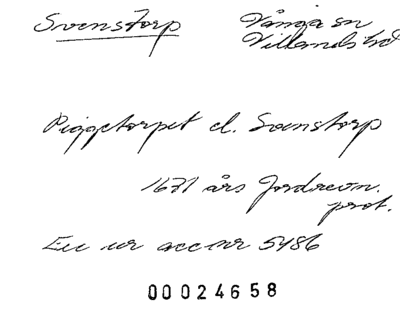 Svenstorp
Vånga sn
Villands hd
Piggetorpet el. Svenstorp
1671 års Jordrevn.
prot.
Exc ur acc nr 5486
00024658